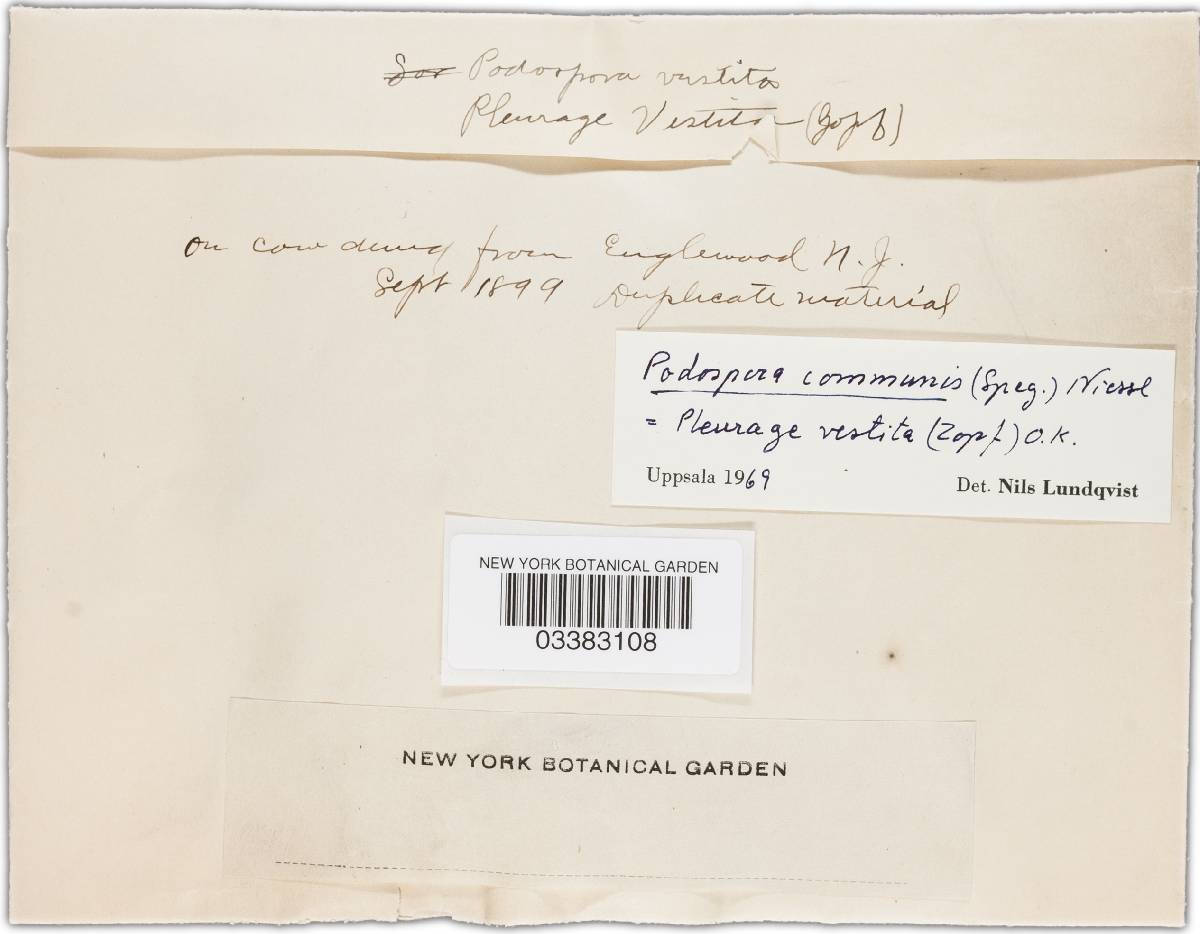 Sor Podospora vestita
Pleurage Vestita (Zopf)
on cow dung from Englewood N. J.
Sept 1899 Duplicate material
Podospora communis (Speg.) Niessl
= Pleurage vestita (Zopf) O.K.
Uppsala 1969 Det. Nils Lundqvist
NEW YORK BOTANICAL GARDEN
03383108
NEW YORK BOTANICAL GARDEN